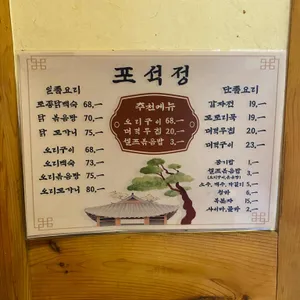 포석정
일품요리
토종닭백숙 68,—
닭 볶음탕 70,—
닭 도가니 75,—
오리구이 68,—
오리백숙 73,—
오리볶음탕 75,—
오리도가니 80,—
추천메뉴
오리구이 68,—
더덕무침 20,—
셀프볶음밥 3,—
단품요리
감자전 19,—
도토리묵 19,—
더덕무침 20,—
더덕구이 23,—
공기밥 1,—
셀프볶음밥 3,—
(오리구이볶음밥)
소주, 맥주, 막걸리 5,—
청하 6,—
복분자 15,—
사이다, 콜라 2,—